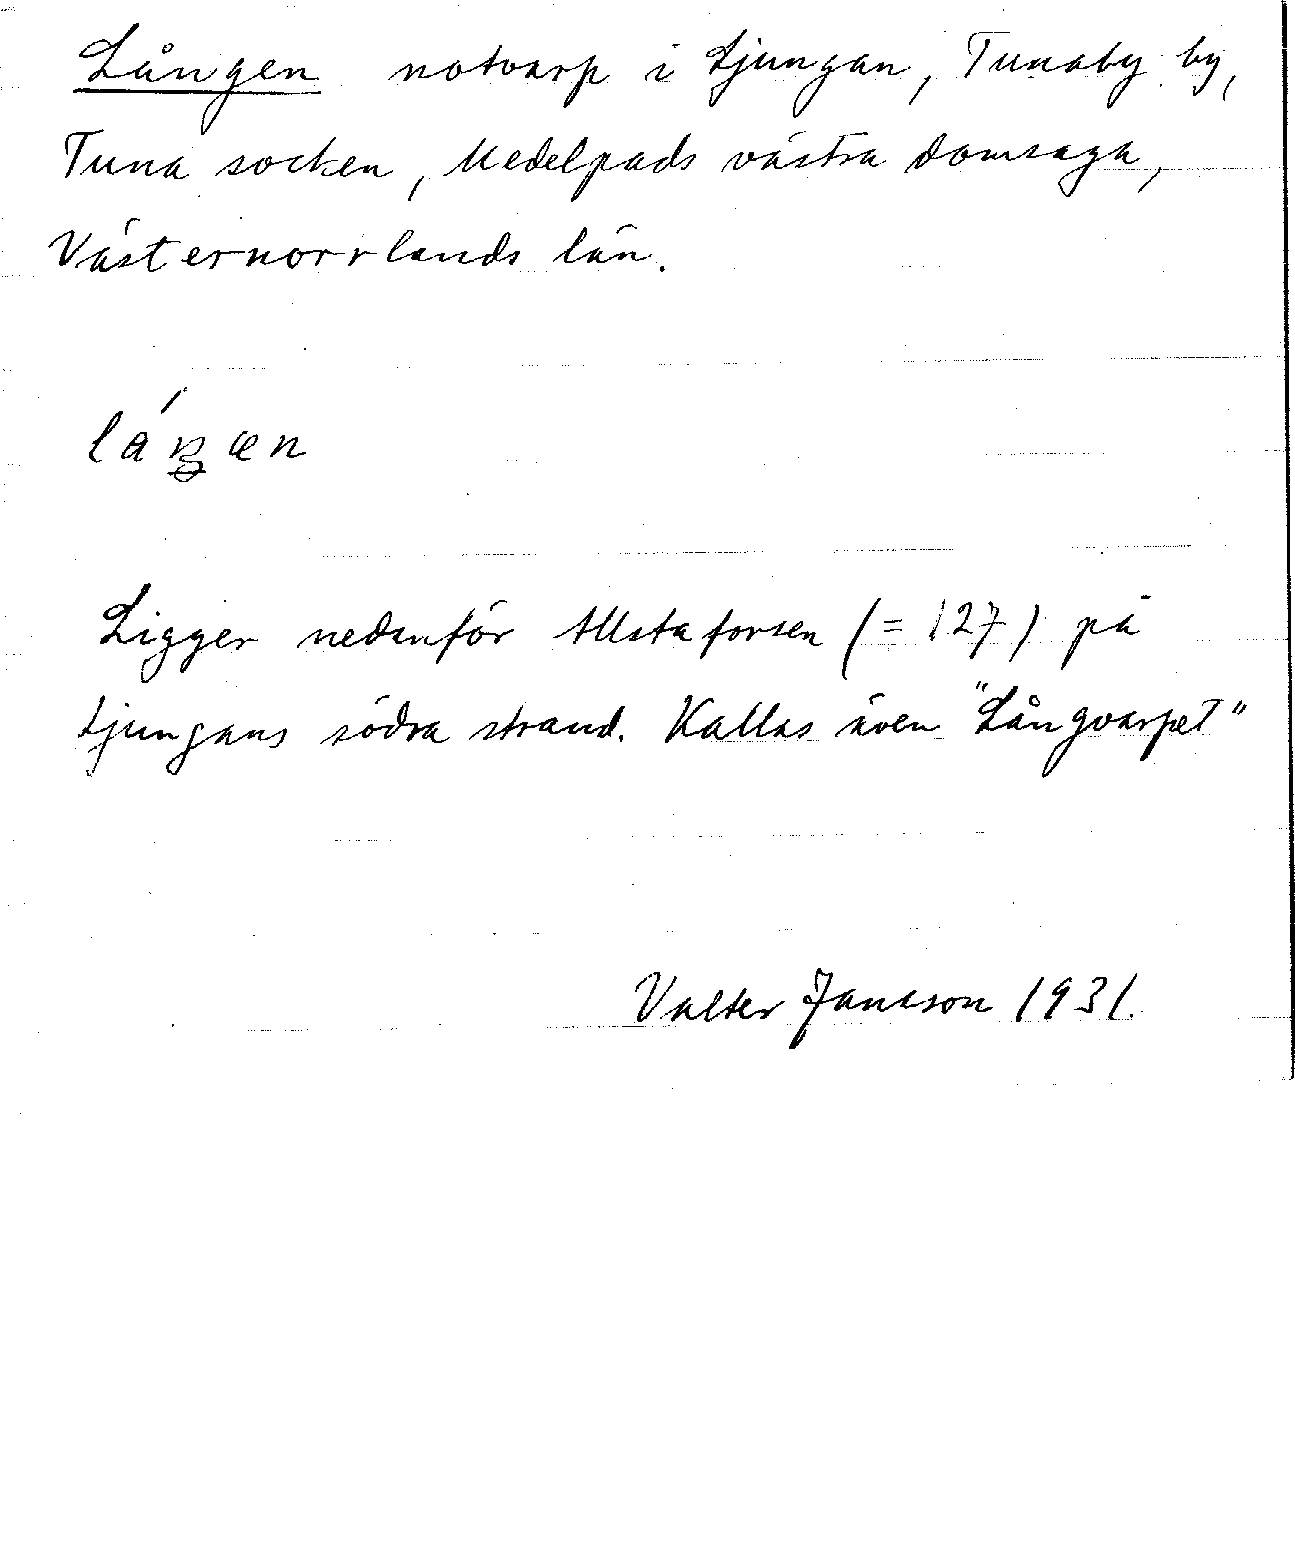 Lången notvarp i Ljungan, Tunaby by,
Tuna socken, Medelpads västra domsaga,
Västernorrlands län.
Ligger nedanför Allstaforsen (= 127) på
Ljungans södra strand. Kallas även "Långvarpet"
Valter Jansson 1931.